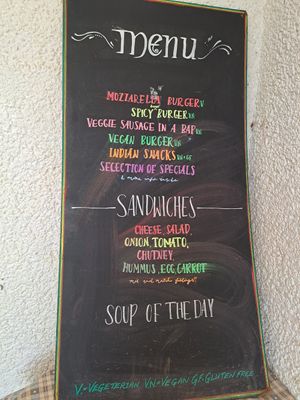 menu
MOZZARELLA BURGER V
SPICY BURGER VN
VEGGIE SAUSAGE IN A BAP VN
VEGAN BURGER VN
INDIAN SNACKS VN+GF
SELECTION OF SPECIALS
& more info inside
SANDWICHES
CHEESE, SALAD,
ONION, TOMATO,
CHUTNEY,
HUMMUS, EGG, CARROT
mix and match fillings!
SOUP OF THE DAY
V.=VEGETERIAN V.N=VEGAN G.F.GLUTEN FREE